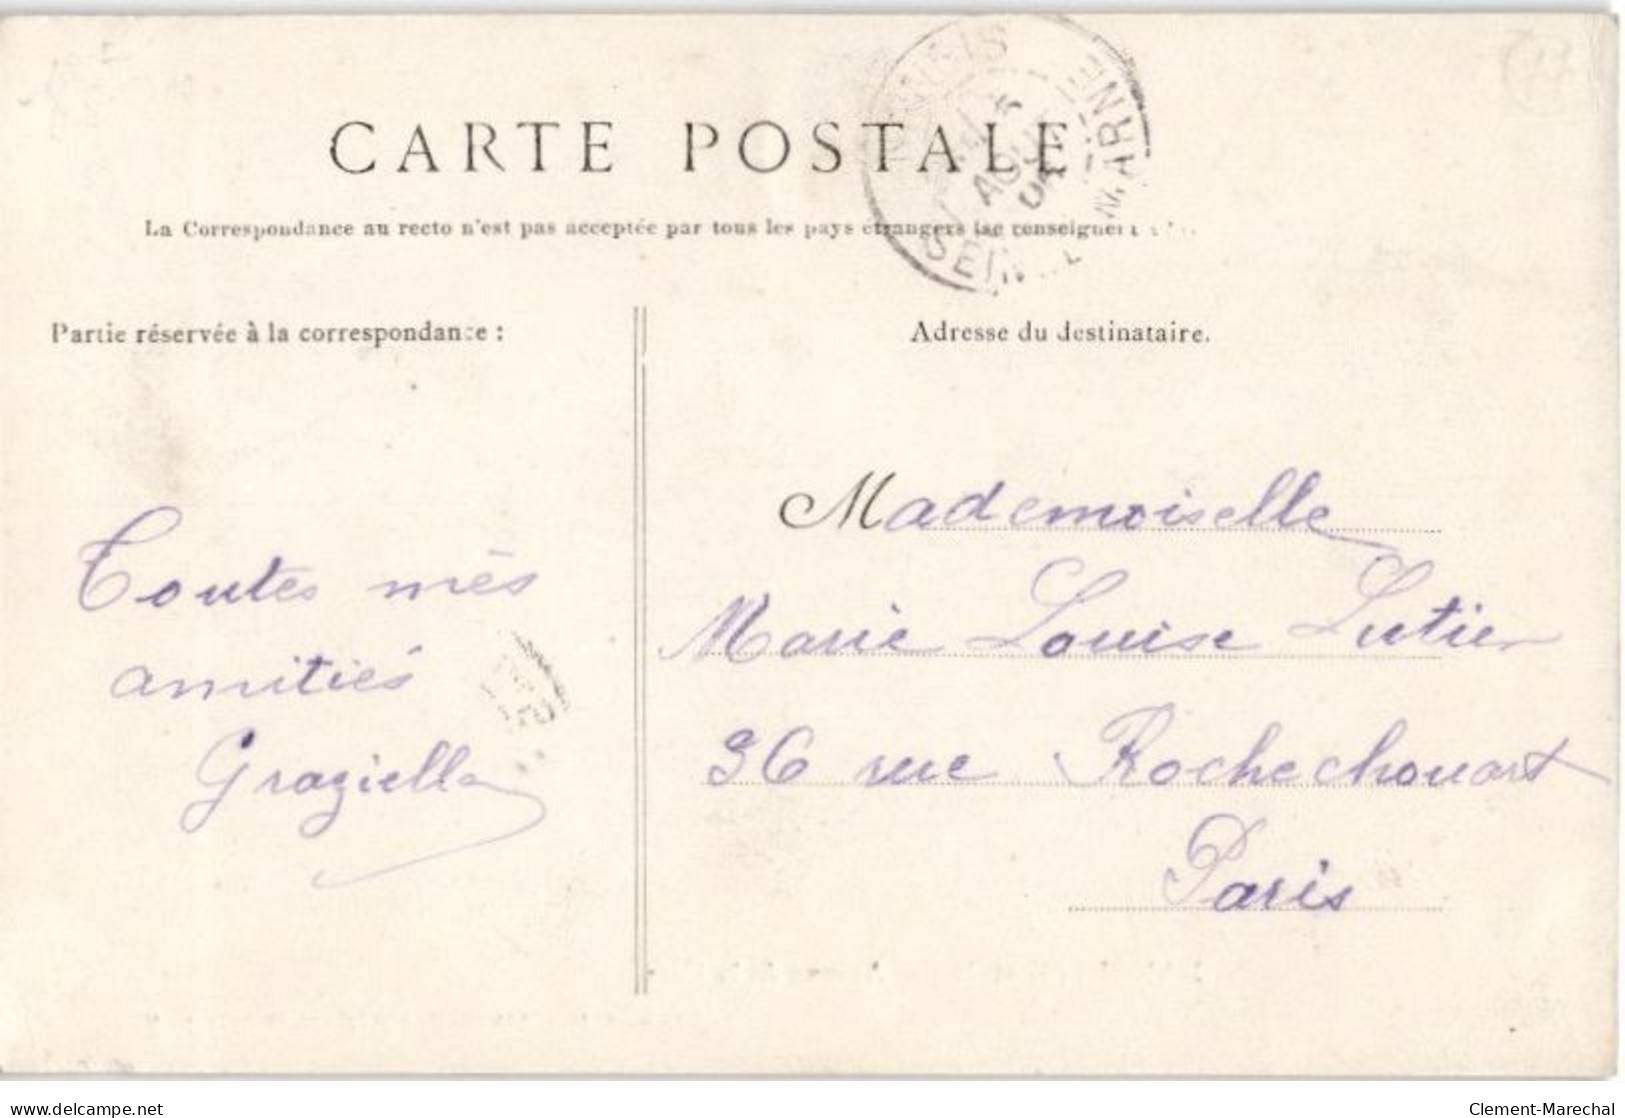 CARTE POSTALE
La Correspondance au recto n'est pas acceptée par tous les pays étrangers (se renseigner
Partie réservée à la correspondance :
Adresse du destinataire.
AOUT
04
SEINE MARNE
Toutes mes
amitiés
Graziella
Mademoiselle
Marie Louise Lutier
36 rue Rochechouart
Paris
www.delcampe.net
Clement-Marechal